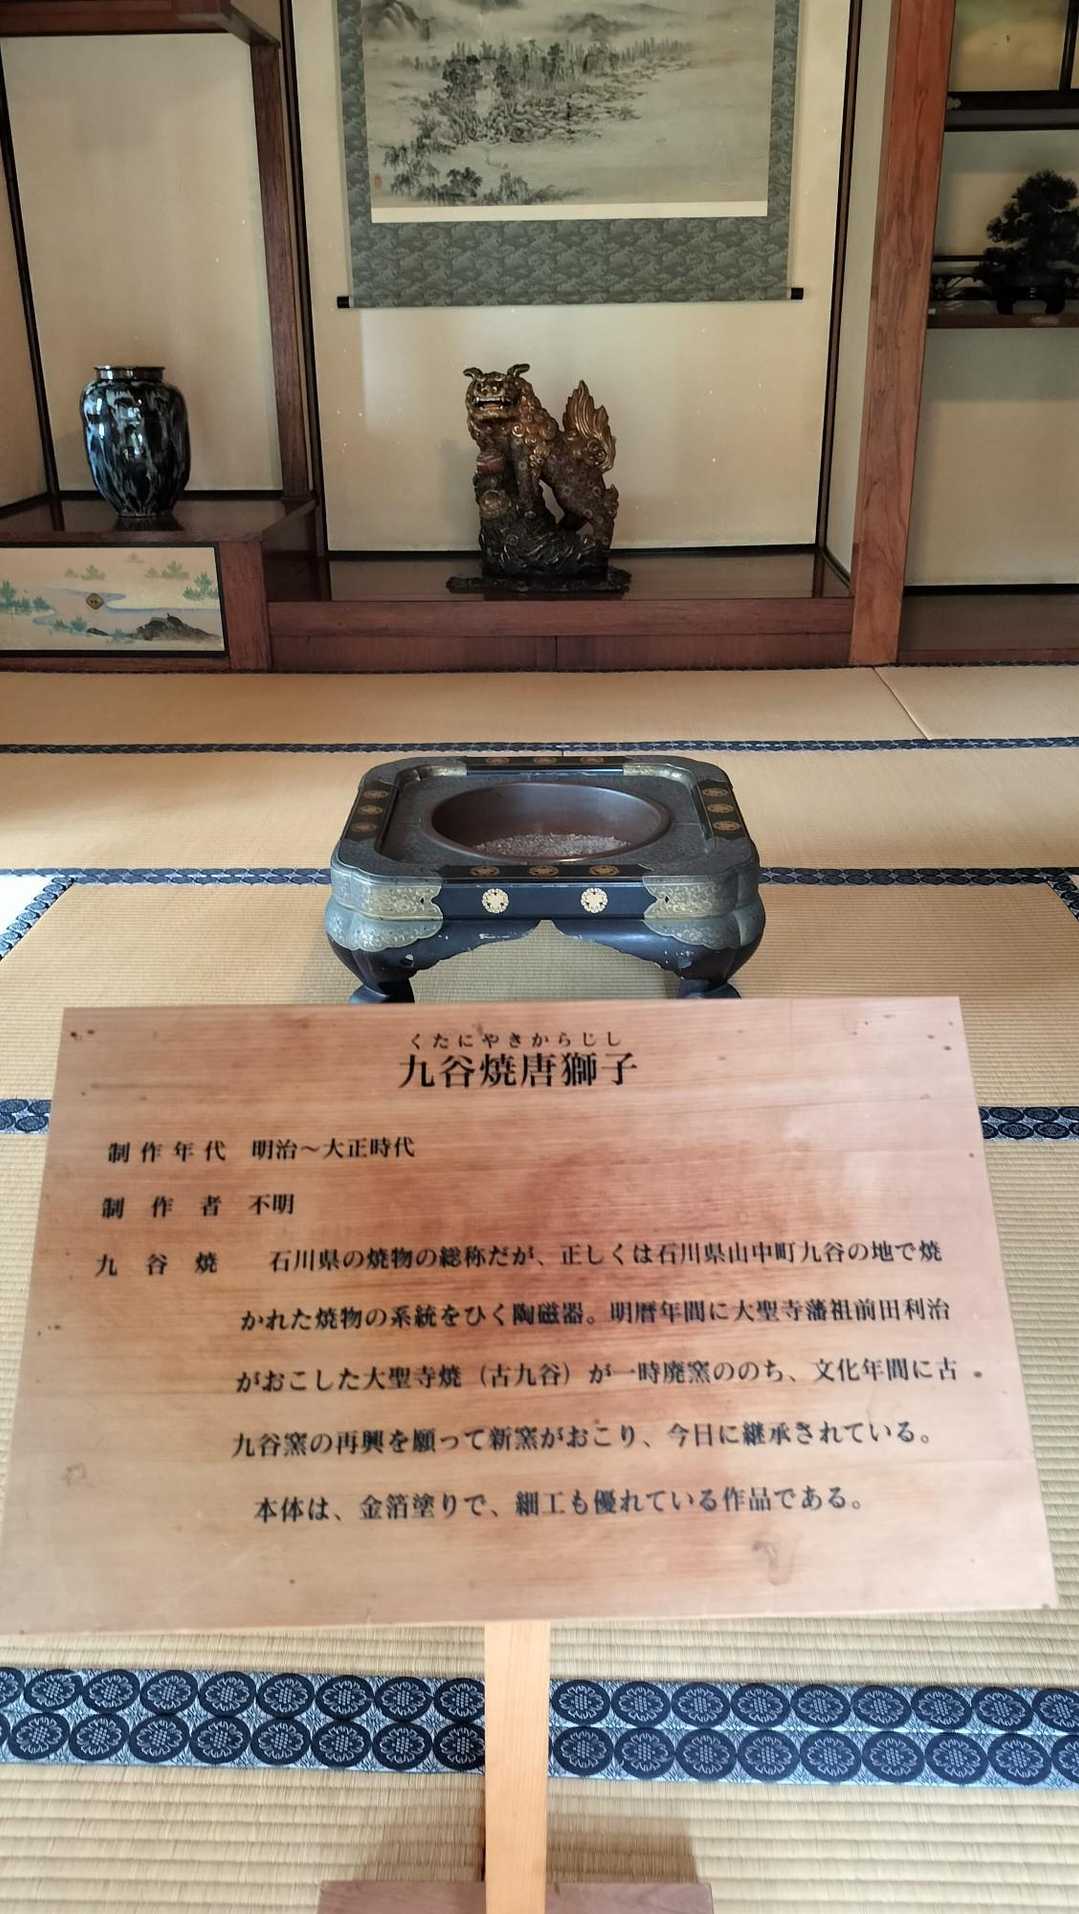 くたにやきからじし
九谷焼唐獅子
制作年代 明治～大正時代
制作者 不明
九谷焼 石川県の焼物の総称だが、正しくは石川県山中町九谷の地で焼
かれた焼物の系統をひく陶磁器。明暦年間に大聖寺藩祖前田利治
がおこした大聖寺焼（古九谷）が一時廃窯ののち、文化年間に古
九谷窯の再興を願って新窯がおこり、今日に継承されている。
本体は、金箔塗りで、細工も優れている作品である。